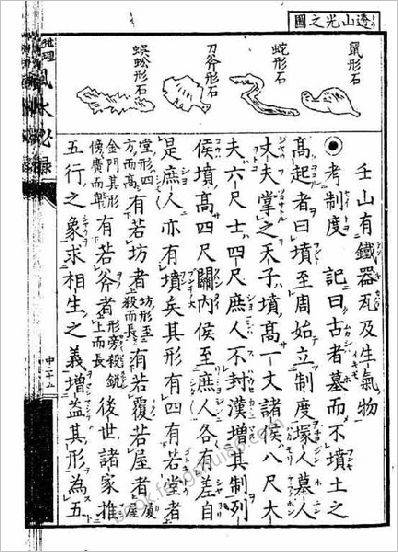 山光之圖
鼠形石
蛇形石
刀斧形石
蜈蚣形石
壬山有鐵器瓦及生氣物
◉考制度 記曰古者墓而不墳土之
高起者曰墳至周始立制度塚人墓人
大夫掌之天子墳高一丈諸侯八尺大
夫六尺士四尺庶人不封漢增其制列
侯墳高四尺關內侯至庶人各有差自
是庶人亦有墳矣其形有四有若堂者
堂形四方而高有若坊者坊形上殺而長有若覆若屋者
金門其形有若斧者形旁殺銳上而長後世諸家推
五行之象求相生之義增益其形為五